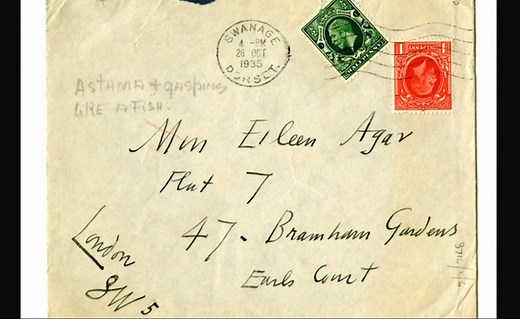 SWANAGE
4 - PM
26 OCT
1935
DORSET.
1
ASTHMA & GASPING
LIKE A FISH.
Miss Eileen Agar
Flat 7
47 - Bramham Gardens
Earls Court
London
SW5